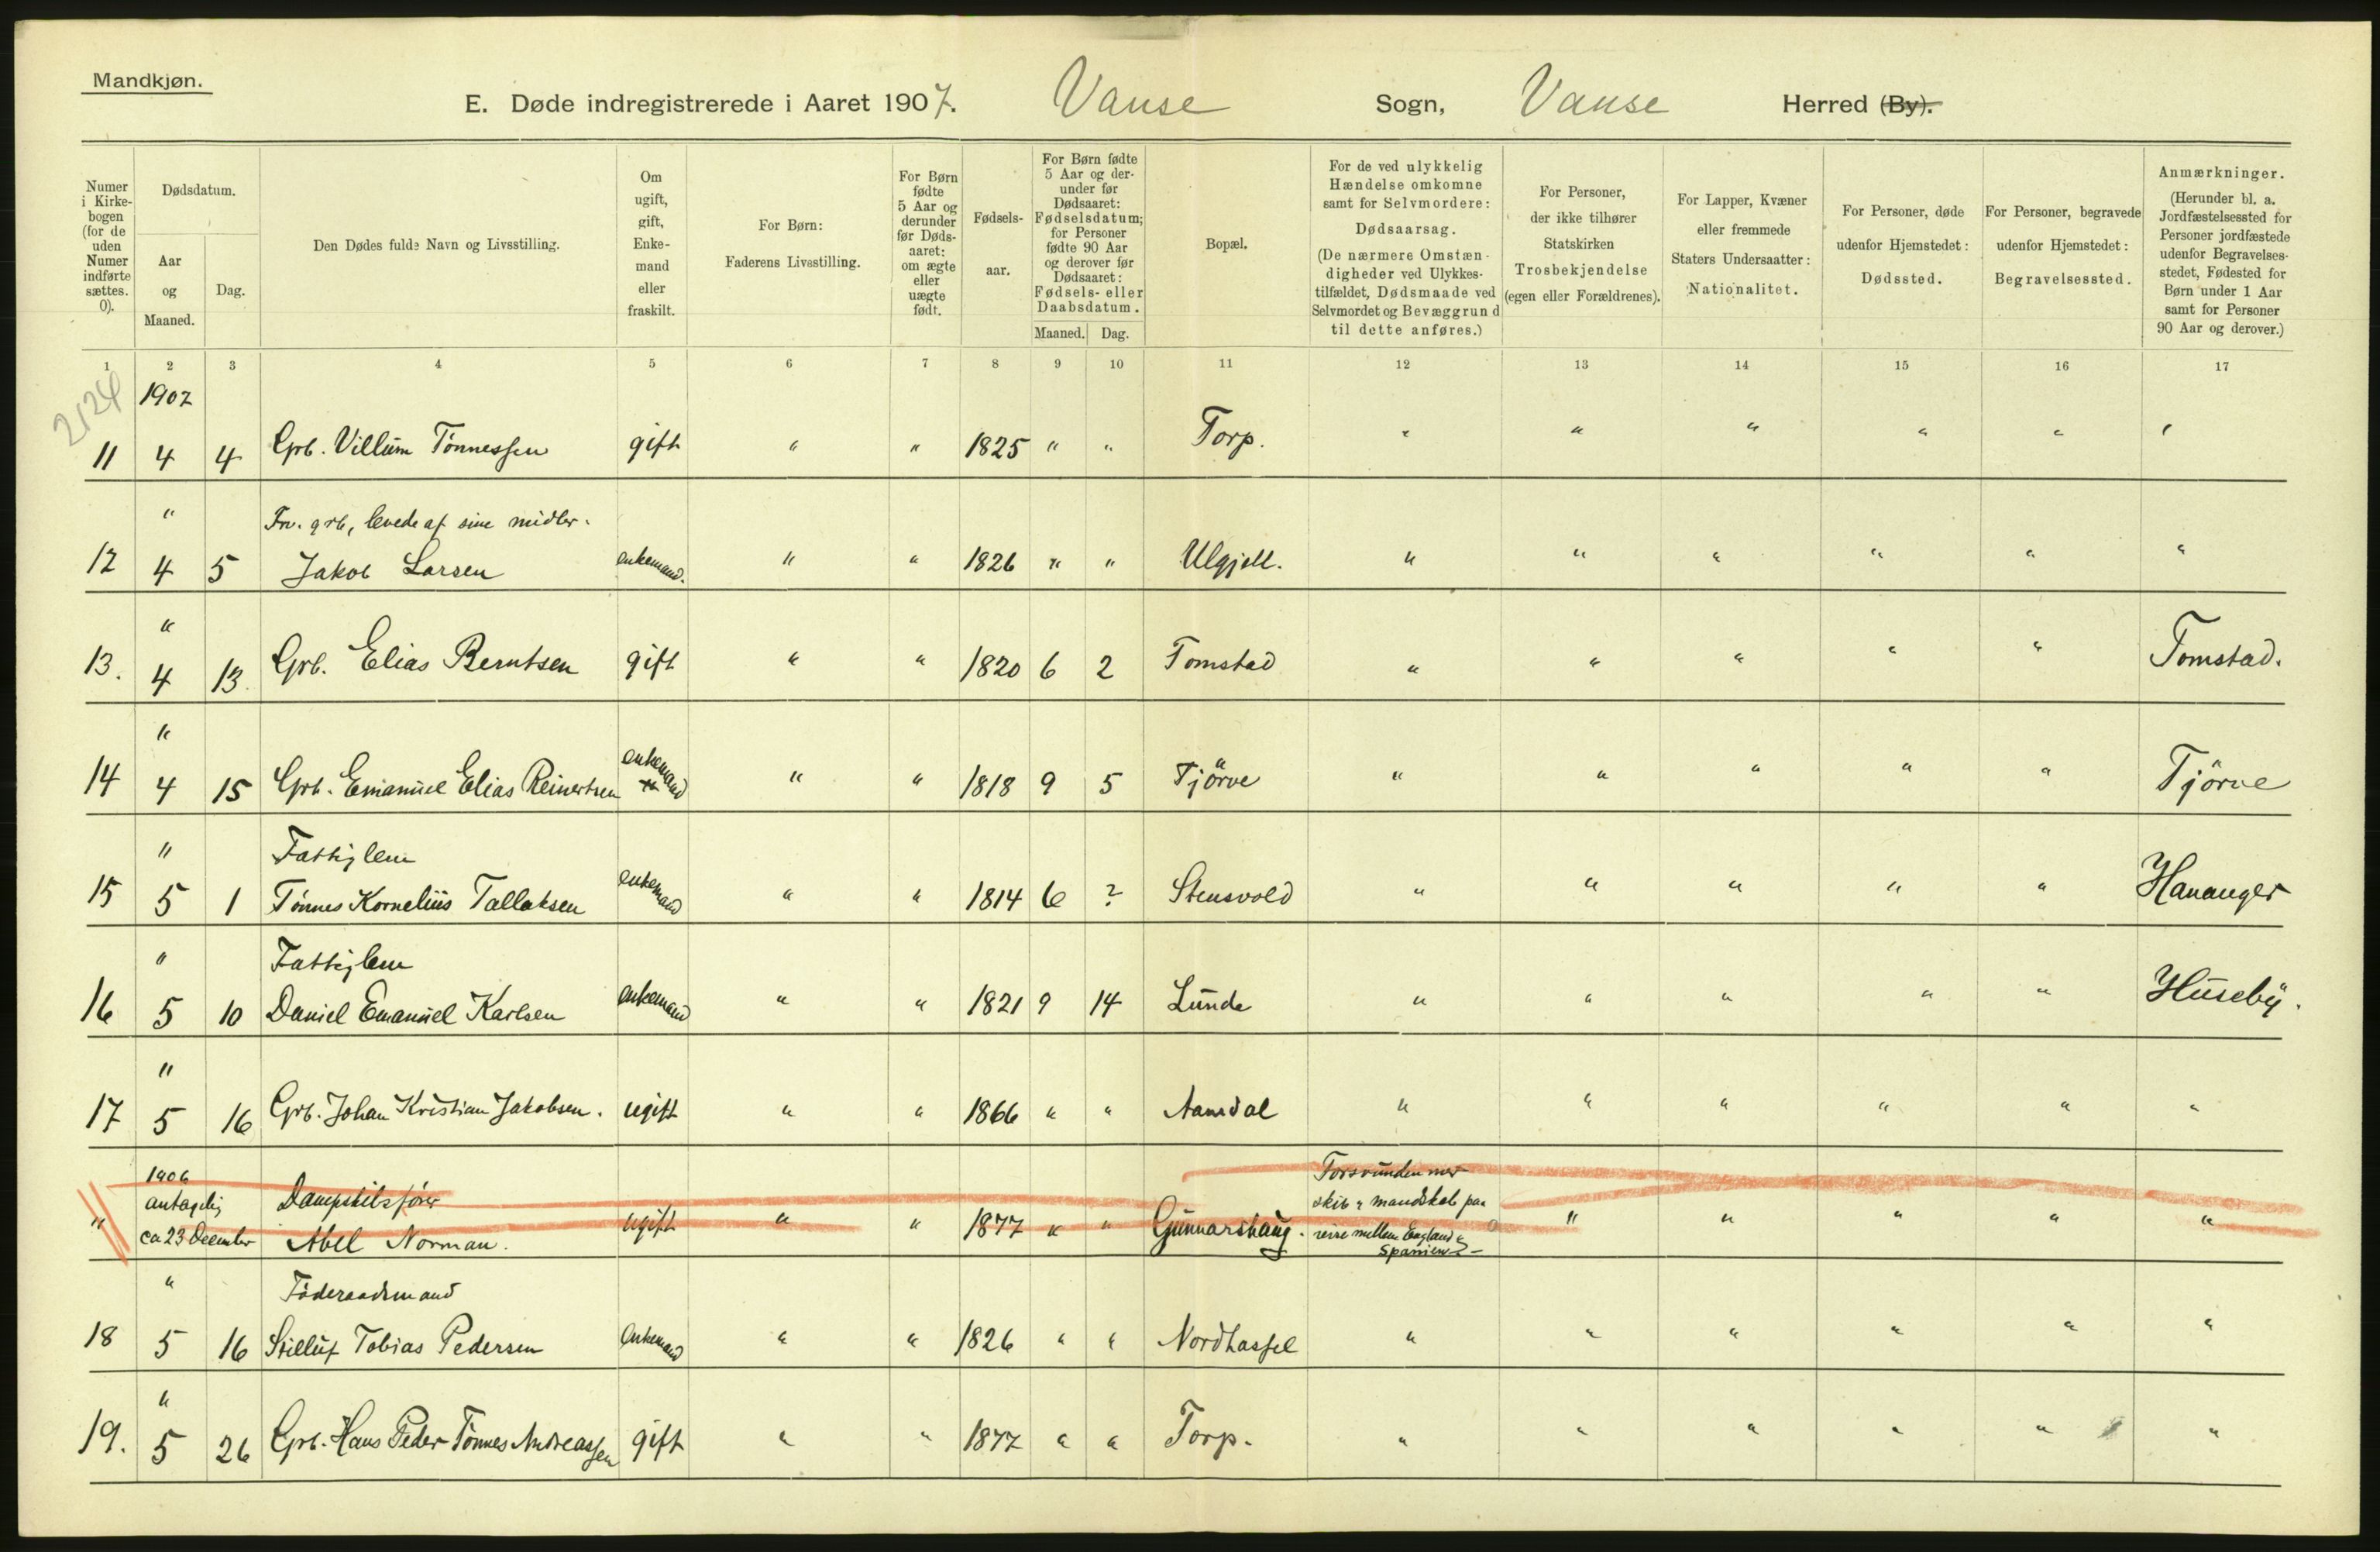 Mandkjøn.
E. Døde indregistrerede i Aaret 1907. Vanse Sogn, Vanse Herred (By).
Numer i Kirke-bogen (for de uden Numer indførte sættes. 0).
Dødsdatum.
Aar og Maaned.
Dag.
Den Dødes fulde Navn og Livsstilling.
Om ugift, gift, Enke-mand eller fraskilt.
For Børn: Faderens Livsstilling.
For Børn fødte 5 Aar og derunder før Døds-aaret: om ægte eller uægte født.
Fødsels-aar.
For Børn fødte 5 Aar og der-under før Dødsaaret: Fødselsdatum; for Personer fødte 90 Aar og derover før Dødsaaret: Fødsels- eller Daabsdatum.
Maaned. Dag.
Bopæl.
For de ved ulykkelig Hændelse omkomne samt for Selvmordere: Dødsaarsag. (De nærmere Omstæn-digheder ved Ulykkes-tilfældet, Dødsmaade ved Selvmordet og Bevæggrund til dette anføres.)
For Personer, der ikke tilhører Statskirken Trosbekjendelse (egen eller Forældrenes).
For Lapper, Kvæner eller fremmede Staters Undersaatter: Nationalitet.
For Personer, døde udenfor Hjemstedet: Dødssted.
For Personer, begravede udenfor Hjemstedet: Begravelsessted.
Anmærkninger. (Herunder bl. a. Jordfæstelsessted for Personer jordfæstede udenfor Begravelses-stedet, Fødested for Børn under 1 Aar samt for Personer 90 Aar og derover.)
1 2 3 4 5 6 7 8 9 10 11 12 13 14 15 16 17
2124
1907
11 4 4 Grb. Villum Tønnessen gift " " 1825 " " Torp. " " " " " "
" Frv. grb, levede af sine midler.
12 4 5 Jakob Larsen enkemand. " " 1826 " " Ulgjell. " " " " " "
"
13. 4 13. Grb. Elias Berntsen gift " " 1820 6 2 Tomstad " " " " " Tomstad.
"
14 4 15 Grb. Emanuel Elias Reinertsen enkemand " " 1818 9 5 Tjörve " " " " " Tjörve
" Fattiglem
15 5 1 Tønnes Kornelius Tallaksen enkemand " " 1814 6 ? Stensvold " " " " " Hananger
" Fattiglem
16 5 10 Daniel Emanuel Karlsen enkemand " " 1821 9 14 Lunde " " " " " Huseby.
"
17 5 16 Grb. Johan Kristian Jakobsen. ugift " " 1866 " " Aamdal " " " " " "
1906 Forsvunden med
antagelig Dampskibsfører skib & mandskab paa
" ca 23 December Abel Norman. ugift " " 1877 " " Gunnarshaug. reise mellem England & " " " " "
Spanien
" Føderaadsmand
18 5 16 Stilluf Tobias Pedersen Enkemand " " 1826 " " Nordhassel " " " " " "
"
19. 5 26 Grb. Hans Peder Tønnes Andreassen gift " " 1877 " " Torp. " " " " " "